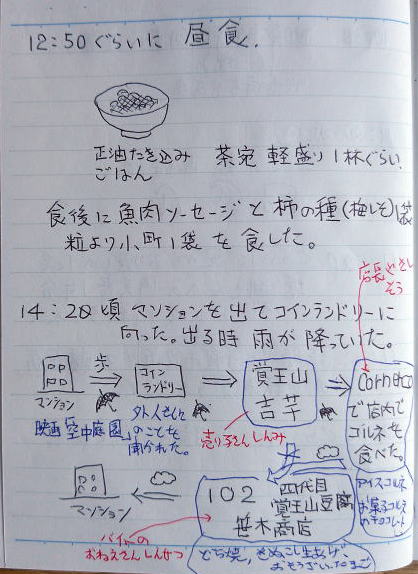 12:50ぐらいに 昼食.
正油たき込み
ごはん
茶宛 軽盛り1杯ぐらい.
食後に魚肉ソーセージと柿の種(梅しそ)1袋
粒より小町1袋を食した。
店長やさし
そう
14:20頃 マンションを出てコインランドリーに
向った。出る時 雨が降っていた。
マンション
歩
コイン
ランドリー
覚王山
吉芋
cornetto
で店内で
コルネを
食べた。
映画「空中庭園」
外人さんに
のことを
聞かれた。
売り子さんしんみ
アイスコルネ
お菓子コルネ
のチョコレート
マンション
102
四代目
覚王山豆腐
笹木商店
バイトの
おねえさんしんせつ
どら焼,きぬごし生あげ,
おもうざいたまご